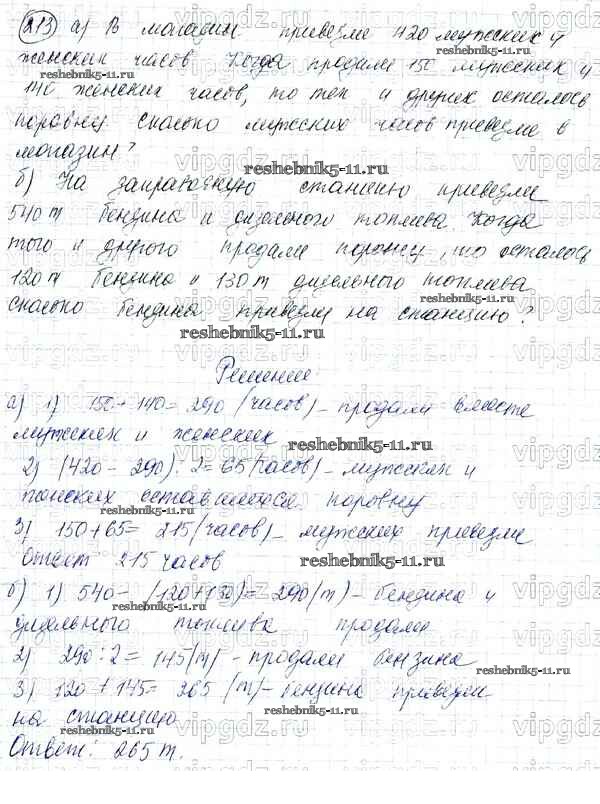 213) а) В магазин привезли 420 мужских и
женских часов. Когда продали 150 мужских и
140 женских часов, то тех и других осталось
поровну. Сколько мужских часов привезли в
магазин?
б) На заправочную станцию привезли
540 т бензина и дизельного топлива. Когда
того и другого продали поровну, то осталось
120 т бензина и 130 т дизельного топлива
Сколько бензина привезли на станцию?
Решение
а) 1) 150 + 140 = 290 (часов) - продали вместе
мужских и женских
2) (420 - 290) : 2 = 65 (часов) - мужских и
женских оставшихся поровну
3) 150 + 65 = 215 (часов) - мужских привезли
Ответ 215 часов
б) 1) 540 - (120 + 130) = 290 (т) - бензина и
дизельного топлива продали
2) 290 : 2 = 145 (т) - продали бензина
3) 120 + 145 = 265 (т) - бензина привезли
на станцию
Ответ: 265 т.
reshebnik5-11.ru
vipgdz.ru